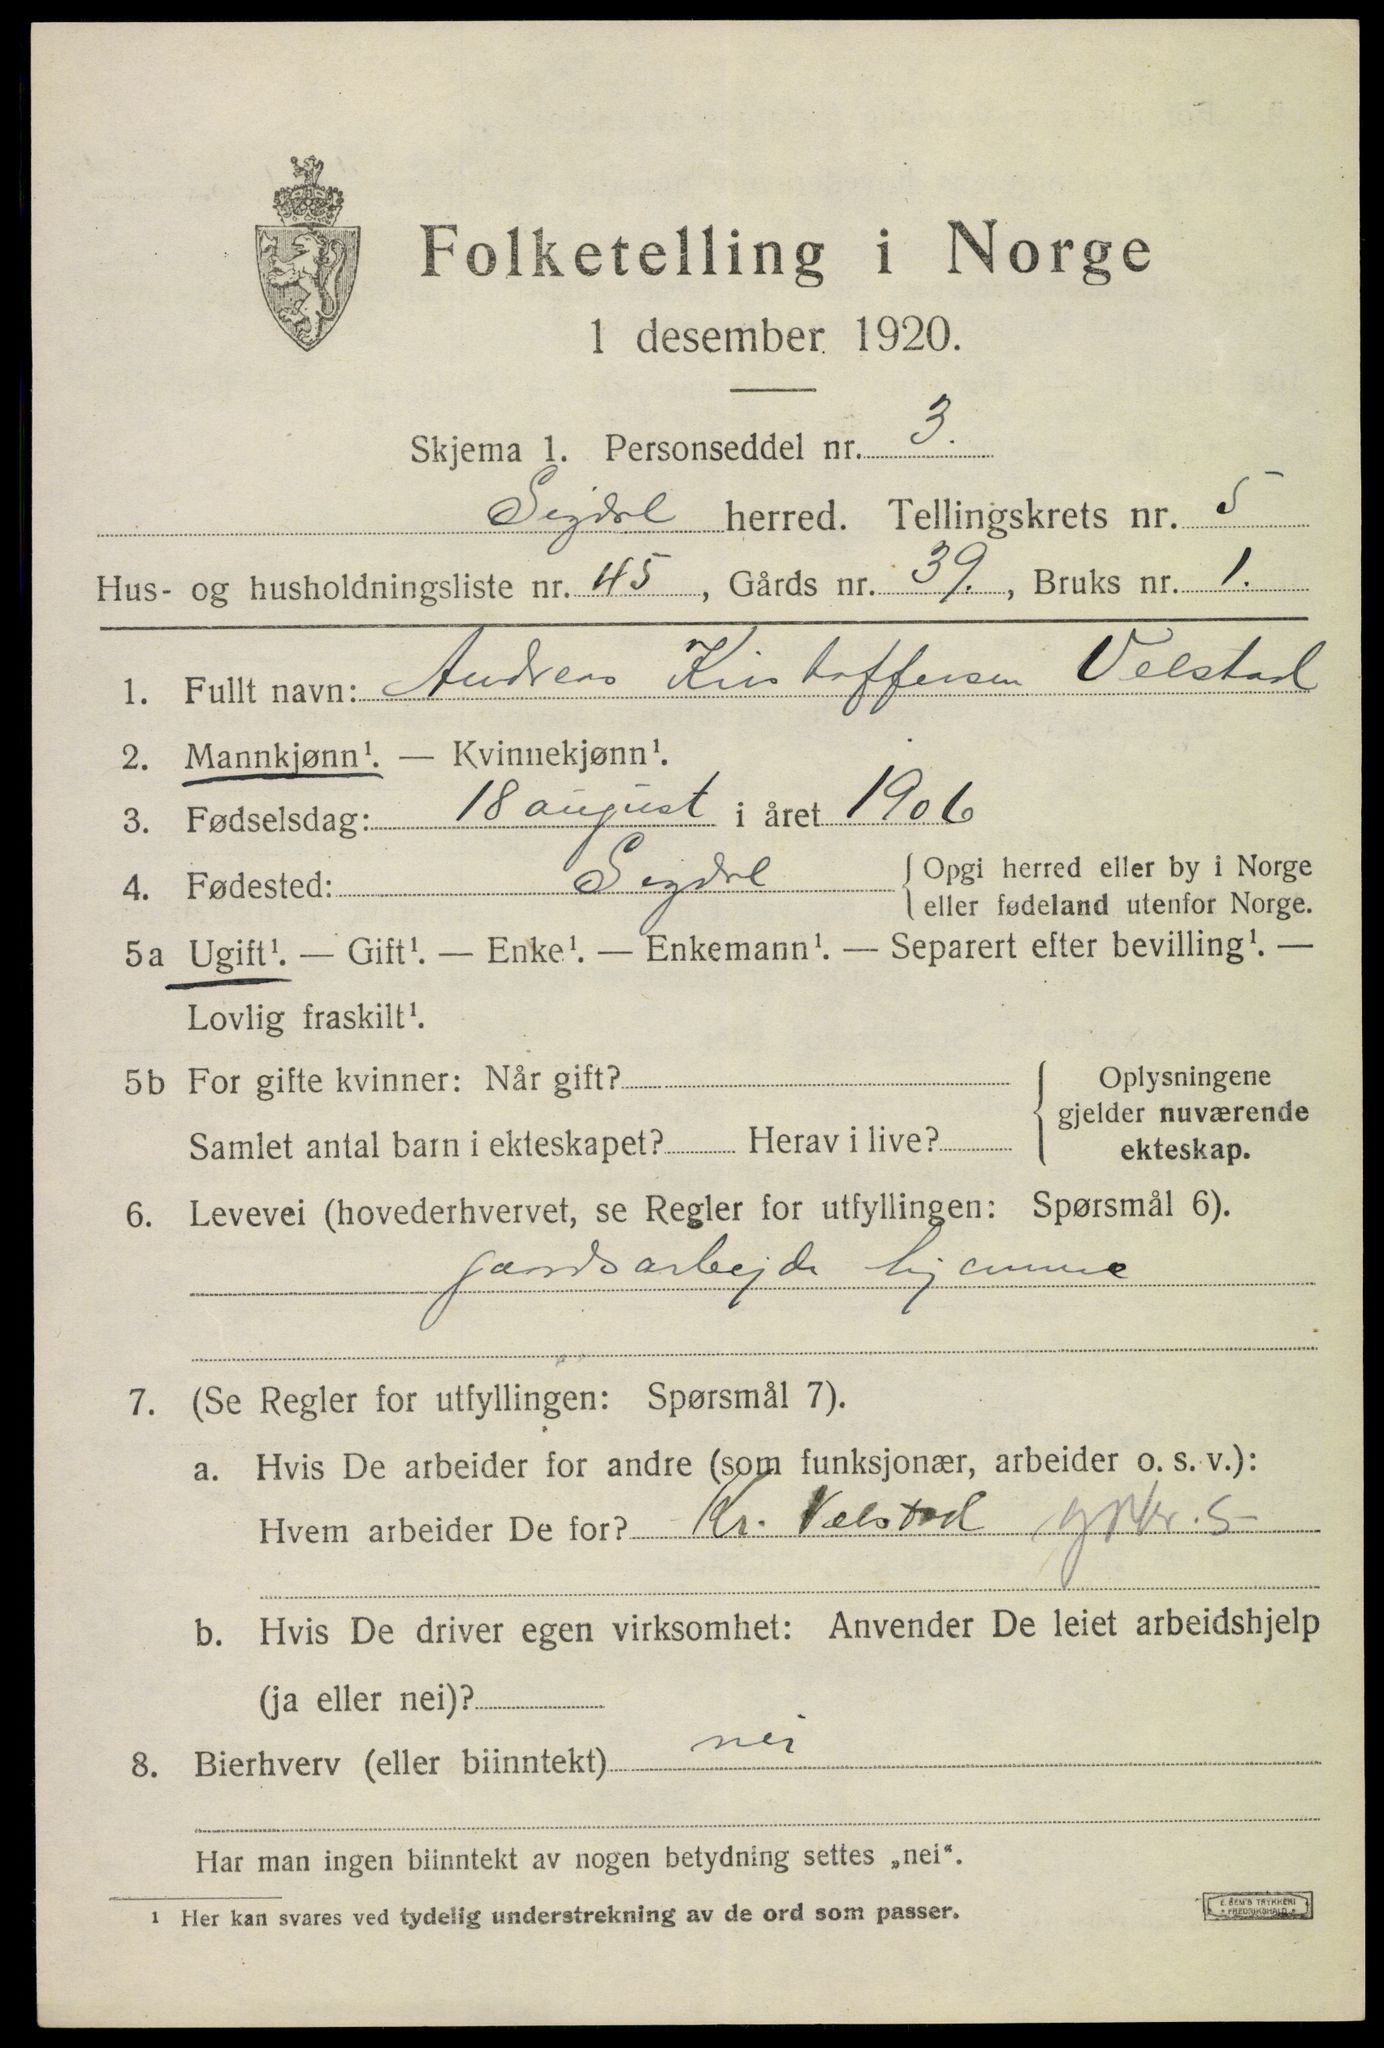 Folketelling i Norge
1 desember 1920.
Skjema 1. Personseddel nr. 3.
Sigdal herred. Tellingskrets nr. 5
Hus- og husholdningsliste nr. 45, Gårds nr. 39., Bruks nr. 1.
1. Fullt navn: Andreas Kristoffersen Velstad
2. Mannkjønn¹. — Kvinnekjønn¹.
3. Fødselsdag: 18 august i året 1906
4. Fødested: Sigdal { Opgi herred eller by i Norge
eller fødeland utenfor Norge.
5a Ugift¹. — Gift¹. — Enke¹. — Enkemann¹. — Separert efter bevilling¹. —
Lovlig fraskilt¹.
5b For gifte kvinner: Når gift? { Oplysningene
gjelder nuværende
Samlet antal barn i ekteskapet? Herav i live? ekteskap.
6. Levevei (hovederhvervet, se Regler for utfyllingen: Spørsmål 6).
gaardsarbejde hjemme
7. (Se Regler for utfyllingen: Spørsmål 7).
a. Hvis De arbeider for andre (som funksjonær, arbeider o. s. v.):
Hvem arbeider De for? Kr. Velstad
b. Hvis De driver egen virksomhet: Anvender De leiet arbeidshjelp
(ja eller nei)?
8. Bierhverv (eller biinntekt) nei
Har man ingen biinntekt av nogen betydning settes „nei“.
¹ Her kan svares ved tydelig understrekning av de ord som passer.
E. SEM'S TRYKKERI
* FREDRIKSHALD *